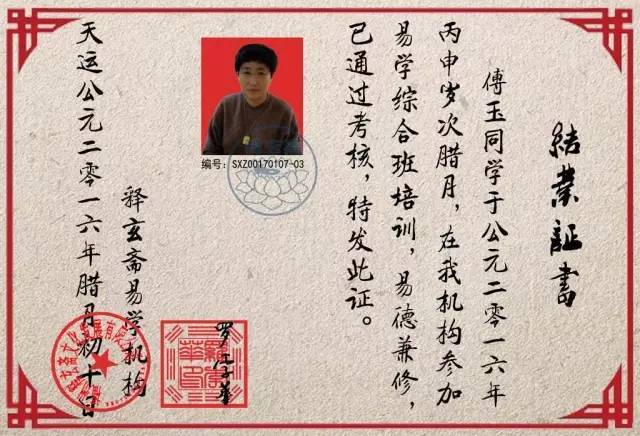 结業証書
傅玉同学于公元二零一六年
丙申岁次腊月，在我机构参加
易学综合班培训，易德兼修，
已通过考核，特发此证。
编号：SXZ00170107-03
释玄斋易学机构
天运公元二零一六年腊月初十日